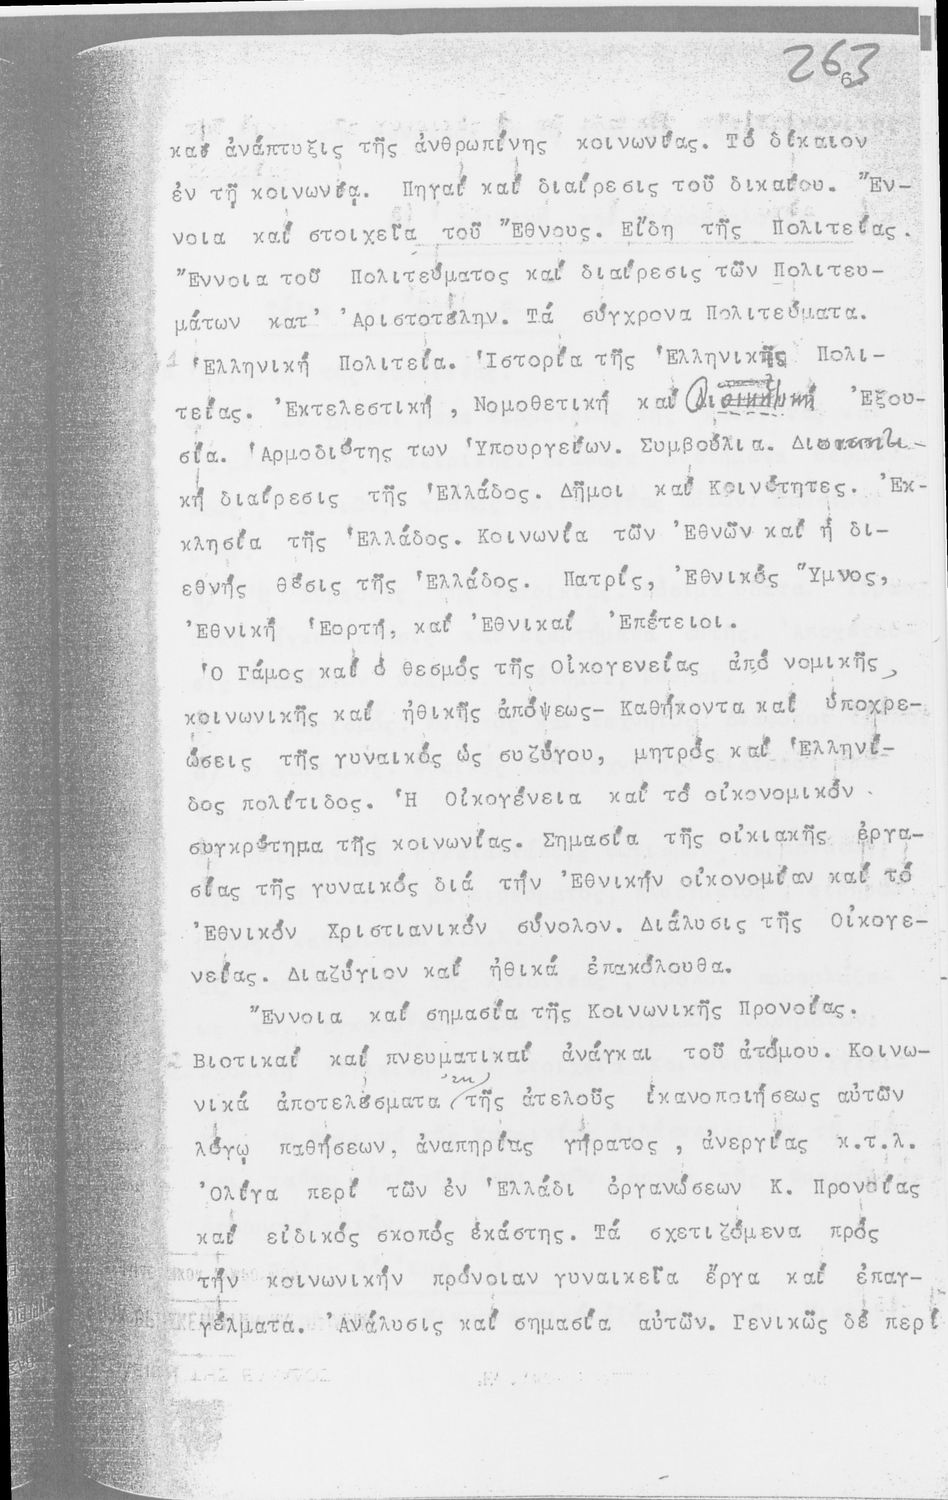 263
6
καί ἀνάπτυξις τῆς ἀνθρωπίνης κοινωνίας. Τό δίκαιον
ἐν τῇ κοινωνίᾳ. Πηγαί καί διαίρεσις τοῦ δικαίου. Ἔν-
νοια καί στοιχεῖα τοῦ Ἔθνους. Εἴδη τῆς Πολιτείας.
Ἔννοια τοῦ Πολιτεύματος καί διαίρεσις τῶν Πολιτευ-
μάτων κατ' Ἀριστοτέλην. Τά σύγχρονα Πολιτεύματα.
Ἑλληνική Πολιτεία. Ἱστορία τῆς Ἑλληνικῆς Πολι-
τείας. Ἐκτελεστική, Νομοθετική καί Ἐξου-
σία. Ἁρμοδιότης των Ὑπουργείων. Συμβούλια.
κή διαίρεσις τῆς Ἑλλάδος. Δῆμοι καί Κοινότητες. Ἐκ-
κλησία τῆς Ἑλλάδος. Κοινωνία τῶν Ἐθνῶν καί ἡ δι-
εθνής θέσις τῆς Ἑλλάδος. Πατρίς, Ἐθνικός Ὕμνος,
Ἐθνική Ἑορτή, καί Ἐθνικαί Ἐπέτειοι.
Ὁ Γάμος καί ὁ θεσμός τῆς Οἰκογενείας ἀπό νομικῆς,
κοινωνικῆς καί ἠθικῆς ἀπόψεως- Καθήκοντα καί ὑποχρε-
ώσεις τῆς γυναικός ὡς συζύγου, μητρός καί Ἑλληνί-
δος πολίτιδος. Ἡ Οἰκογένεια καί τό οἰκονομικόν
συγκρότημα τῆς κοινωνίας. Σημασία τῆς οἰκιακῆς ἐργα-
σίας τῆς γυναικός διά τήν Ἐθνικήν οἰκονομίαν καί τό
Ἐθνικόν Χριστιανικόν σύνολον. Διάλυσις τῆς Οἰκογε-
νείας. Διαζύγιον καί ἠθικά ἐπακόλουθα.
Ἔννοια καί σημασία τῆς Κοινωνικῆς Προνοίας.
Βιοτικαί καί πνευματικαί ἀνάγκαι τοῦ ἀτόμου. Κοινω-
νικά ἀποτελέσματα τῆς ἀτελοῦς ἱκανοποιήσεως αὐτῶν
λόγῳ παθήσεων, ἀναπηρίας γήρατος, ἀνεργίας κ.τ.λ.
Ὀλίγα περί τῶν ἐν Ἑλλάδι ὀργανώσεων Κ. Προνοίας
καί εἰδικός σκοπός ἑκάστης. Τά σχετιζόμενα πρός
τήν κοινωνικήν πρόνοιαν γυναικεῖα ἔργα καί ἐπαγ-
γέλματα. Ἀνάλυσις καί σημασία αὐτῶν. Γενικῶς δέ περί